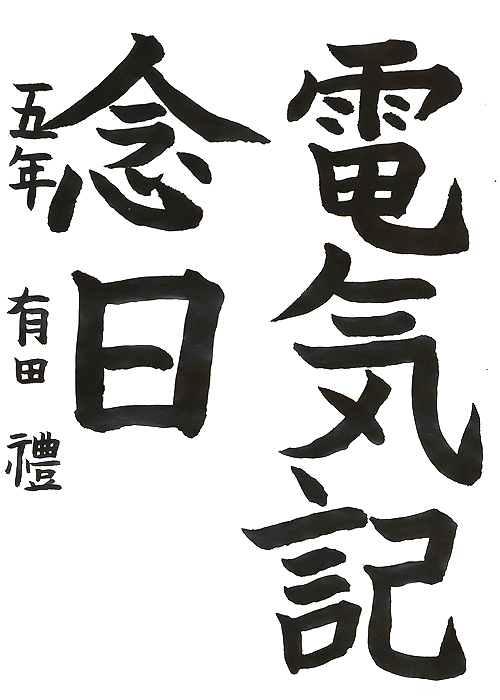 電気記
念日
五年 有田 禮